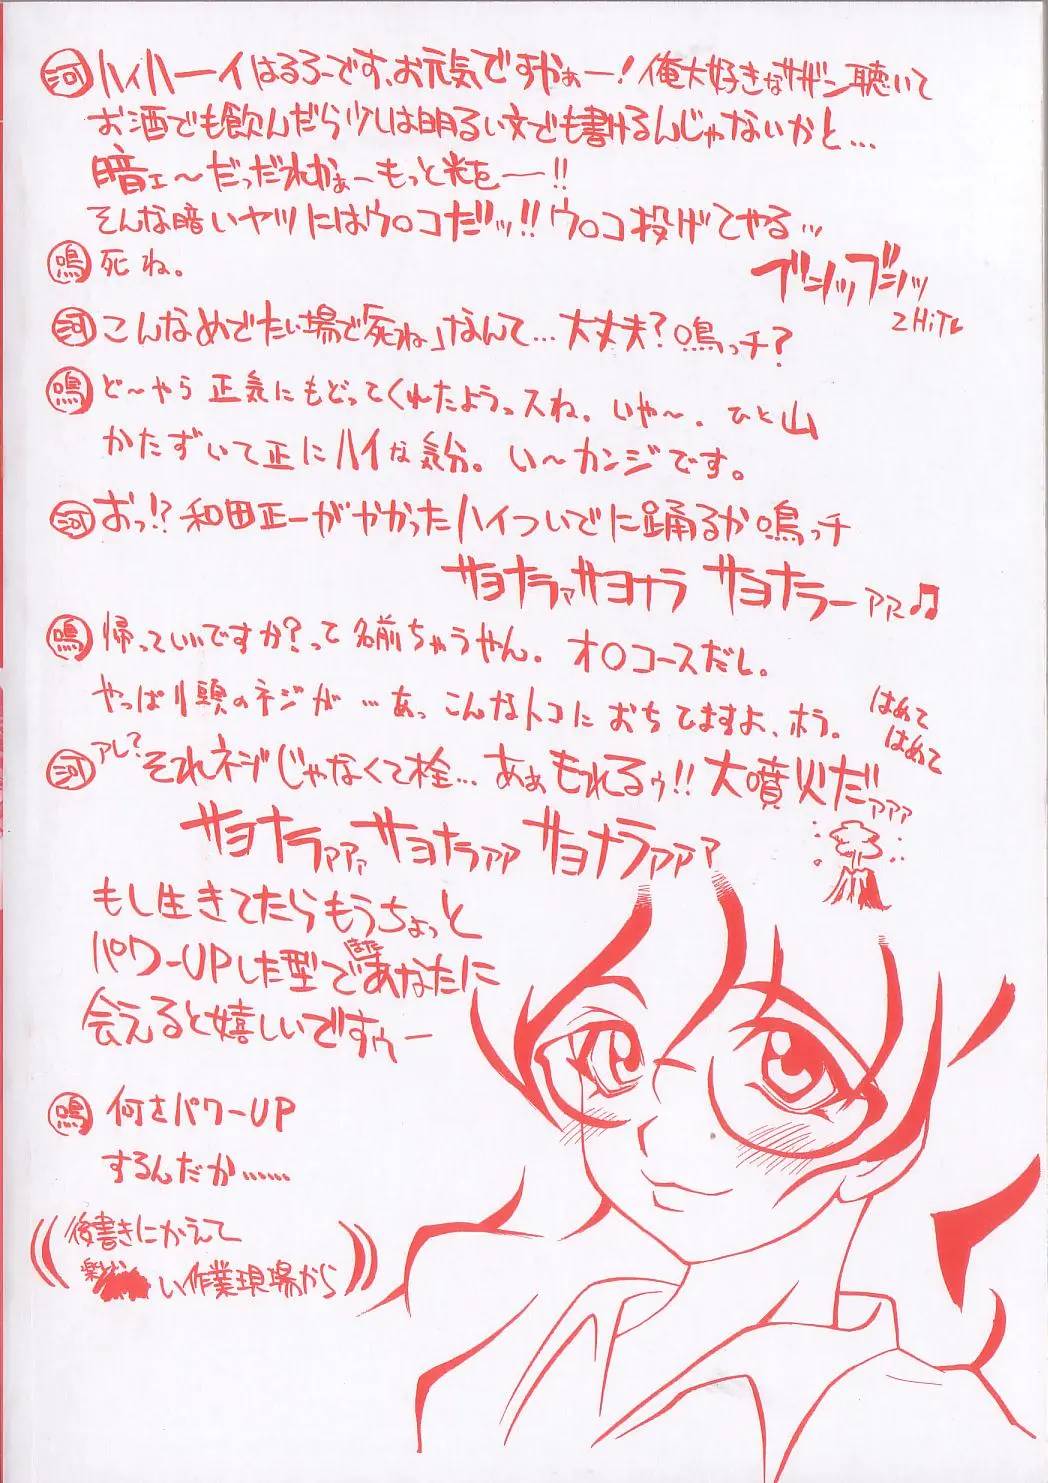 河 ハイハーイはるろーです、お元気ですかぁー!俺大好きなサザン聴いて
お酒でも飲んだら少しは明るい文でも書けるんじゃないかと…
暗ェ〜だっだれかぁーもっと光をー!!
そんな暗いヤツにはウ○コだッ!!ウ○コ投げてやる…
ブシッブシッ
2HiTし
鳴 死ね。
河 こんなめでたい場で「死ね」なんて…大丈夫?鳴っチ?
鳴 ど〜やら正気にもどってくれたようっスね。いや〜、ひと山
かたずいて正にハイな気分。い〜カンジです。
河 おっ!?和田正一がやかったハイついでに踊るか鳴っチ
サヨナラァサヨナラ サヨナラーァァ♫
鳴 帰っていいですか?って名前ちゃうやん。オ○コースだし。
やっぱり頭のネジが…あっこんなトコにおちてますよ、ホラ。
はめて
はめて
河 アレ?それネジじゃなくて栓…あぁもれるゥ!!大噴火だァァァ
サヨナラァァァサヨナラァァサヨナラァァァ
もし生きてたらもうちょっと
パワーUPした型であなたに
会えると嬉しいですぅー
鳴 何をパワーUP
するんだか……
後書きにかえて
楽し い作業現場から